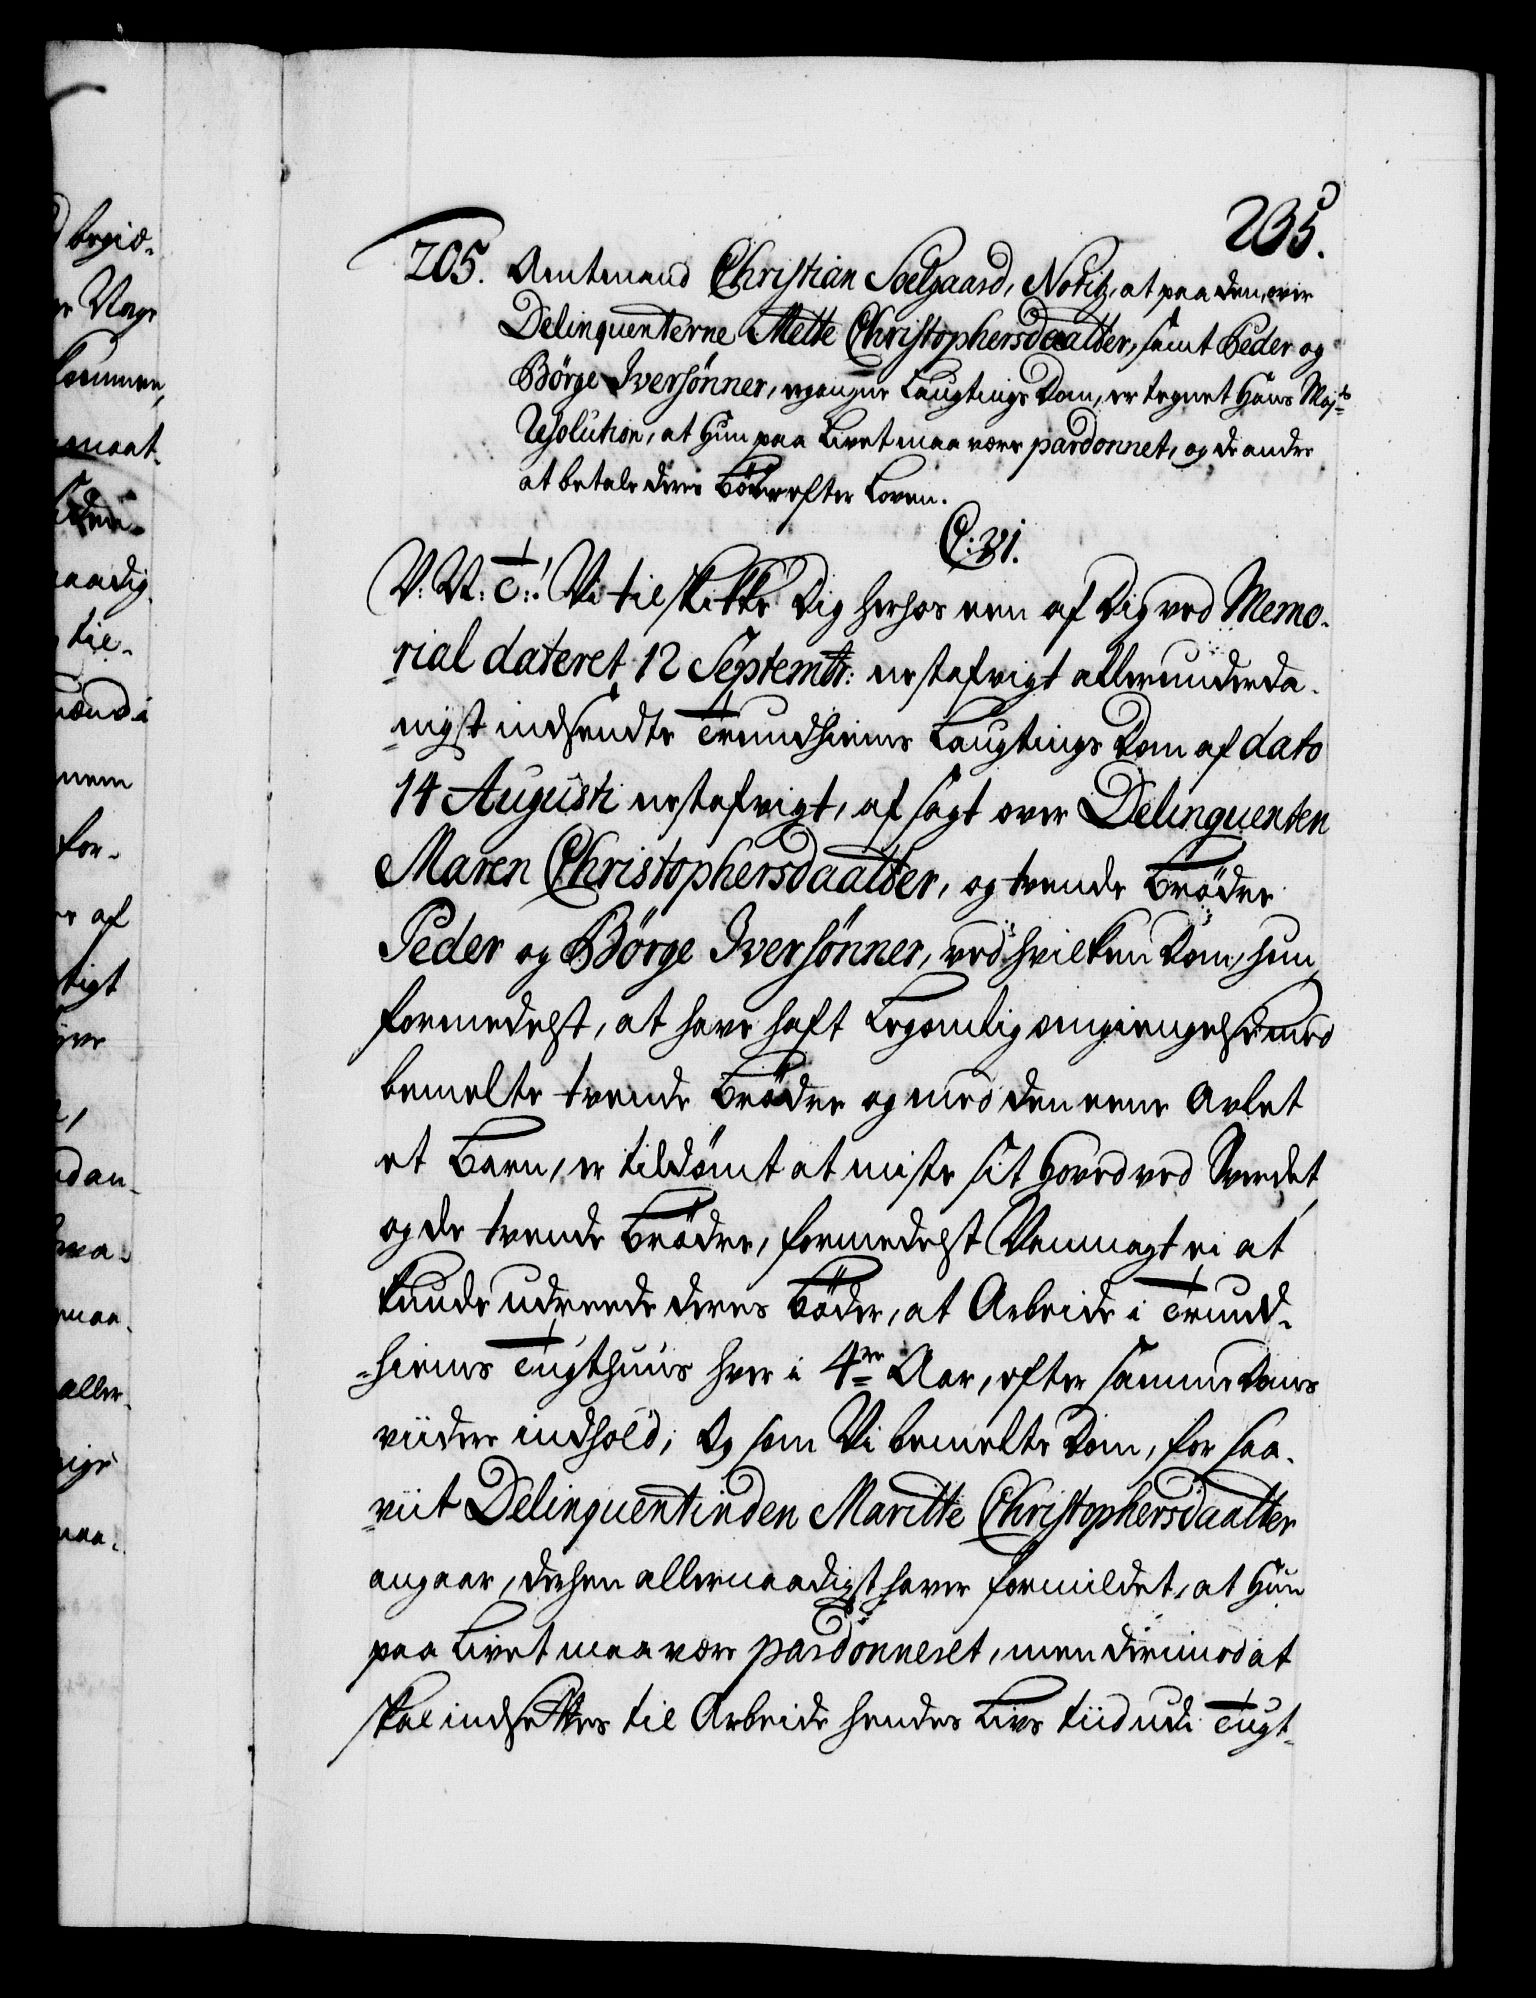 235.
205. Amtmand Christian Soelgaard, Notitz, at paa den, over
Delinquenterne Mette Christophersdaatter, samt Peder og
Börge Iversönner, ergangne Laugtings Dom, er tegnet Hans Maj:ts
Resolution, at hun paa Livet maa være pardonnet, og de andre
at betale deris Böder efter Loven.
C: VI.
V: V: T:! Vi tilskikke Dig herhos een af Dig ved Memo-
rial dateret 12 Septembr: nestafvigt allerunderda-
nigst indsendte Trundhiems Laugtings Dom af dato
14 Augusti nestafvigt, afsagt over Delinquenten
Maren Christophersdaatter, og tvende Brödre
Peder og Börge Iversönner, ved hvilken Dom, hun
formedelst, at have haft Legomlig omgiengelse med
bemelte tvende Brödre og med den eene Avlet
et Barn, er tildömt at miste sit Hoved ved Sverdet,
og de tvende Brödre, formedelst Vanmagt ei at
kunde udreede deres Böder, at Arbeide i Trund-
hiems Tugthuus hver i 4re Aar, efter samme Doms
viidere indhold; Og som Vi bemelte Dom, for saa-
viit Delinquentinden Maritte Christophersdaatter
angaar, dishen allernaadigst haver formildet, at Hun
paa Livet maa være pardonneret, men derimod at
skal indsettes til Arbeide hendes Livs tiid udi Tugt-